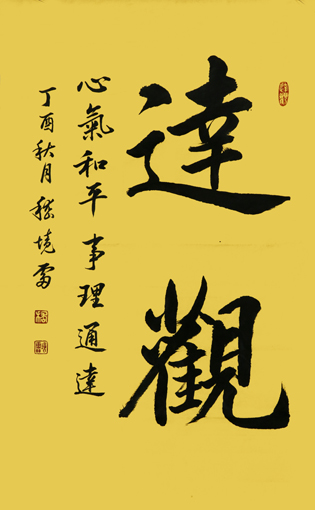 達觀
心氣和平事理通達
丁酉秋月